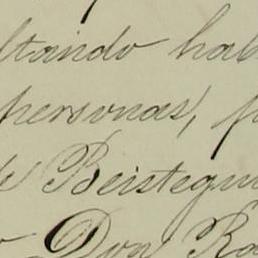 ltando hab
personas, p
de Beistegui
Don Ra